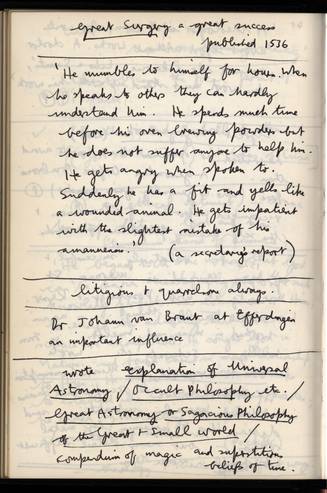 Great Surgery a great success
published 1536
'He mumbles to himself for hours. When
he speaks to others they can hardly
understand him. He spends much time
before his oven brewing powders but
he does not suffer anyone to help him.
He gets angry when spoken to.
Suddenly he has a fit and yells like
a wounded animal. He gets impatient
with the slightest mistake of his
amanuensis.' (a secretary's report)
litigious + quarrelsome always.
Dr Johann van Brant at Efferdingen
an important influence
wrote Explanation of Universal
Astronomy / Occult Philosophy etc. /
Great Astronomy or Sagacious Philosophy
of the Great + Small World /
Compendium of magic and superstitions
beliefs of time.